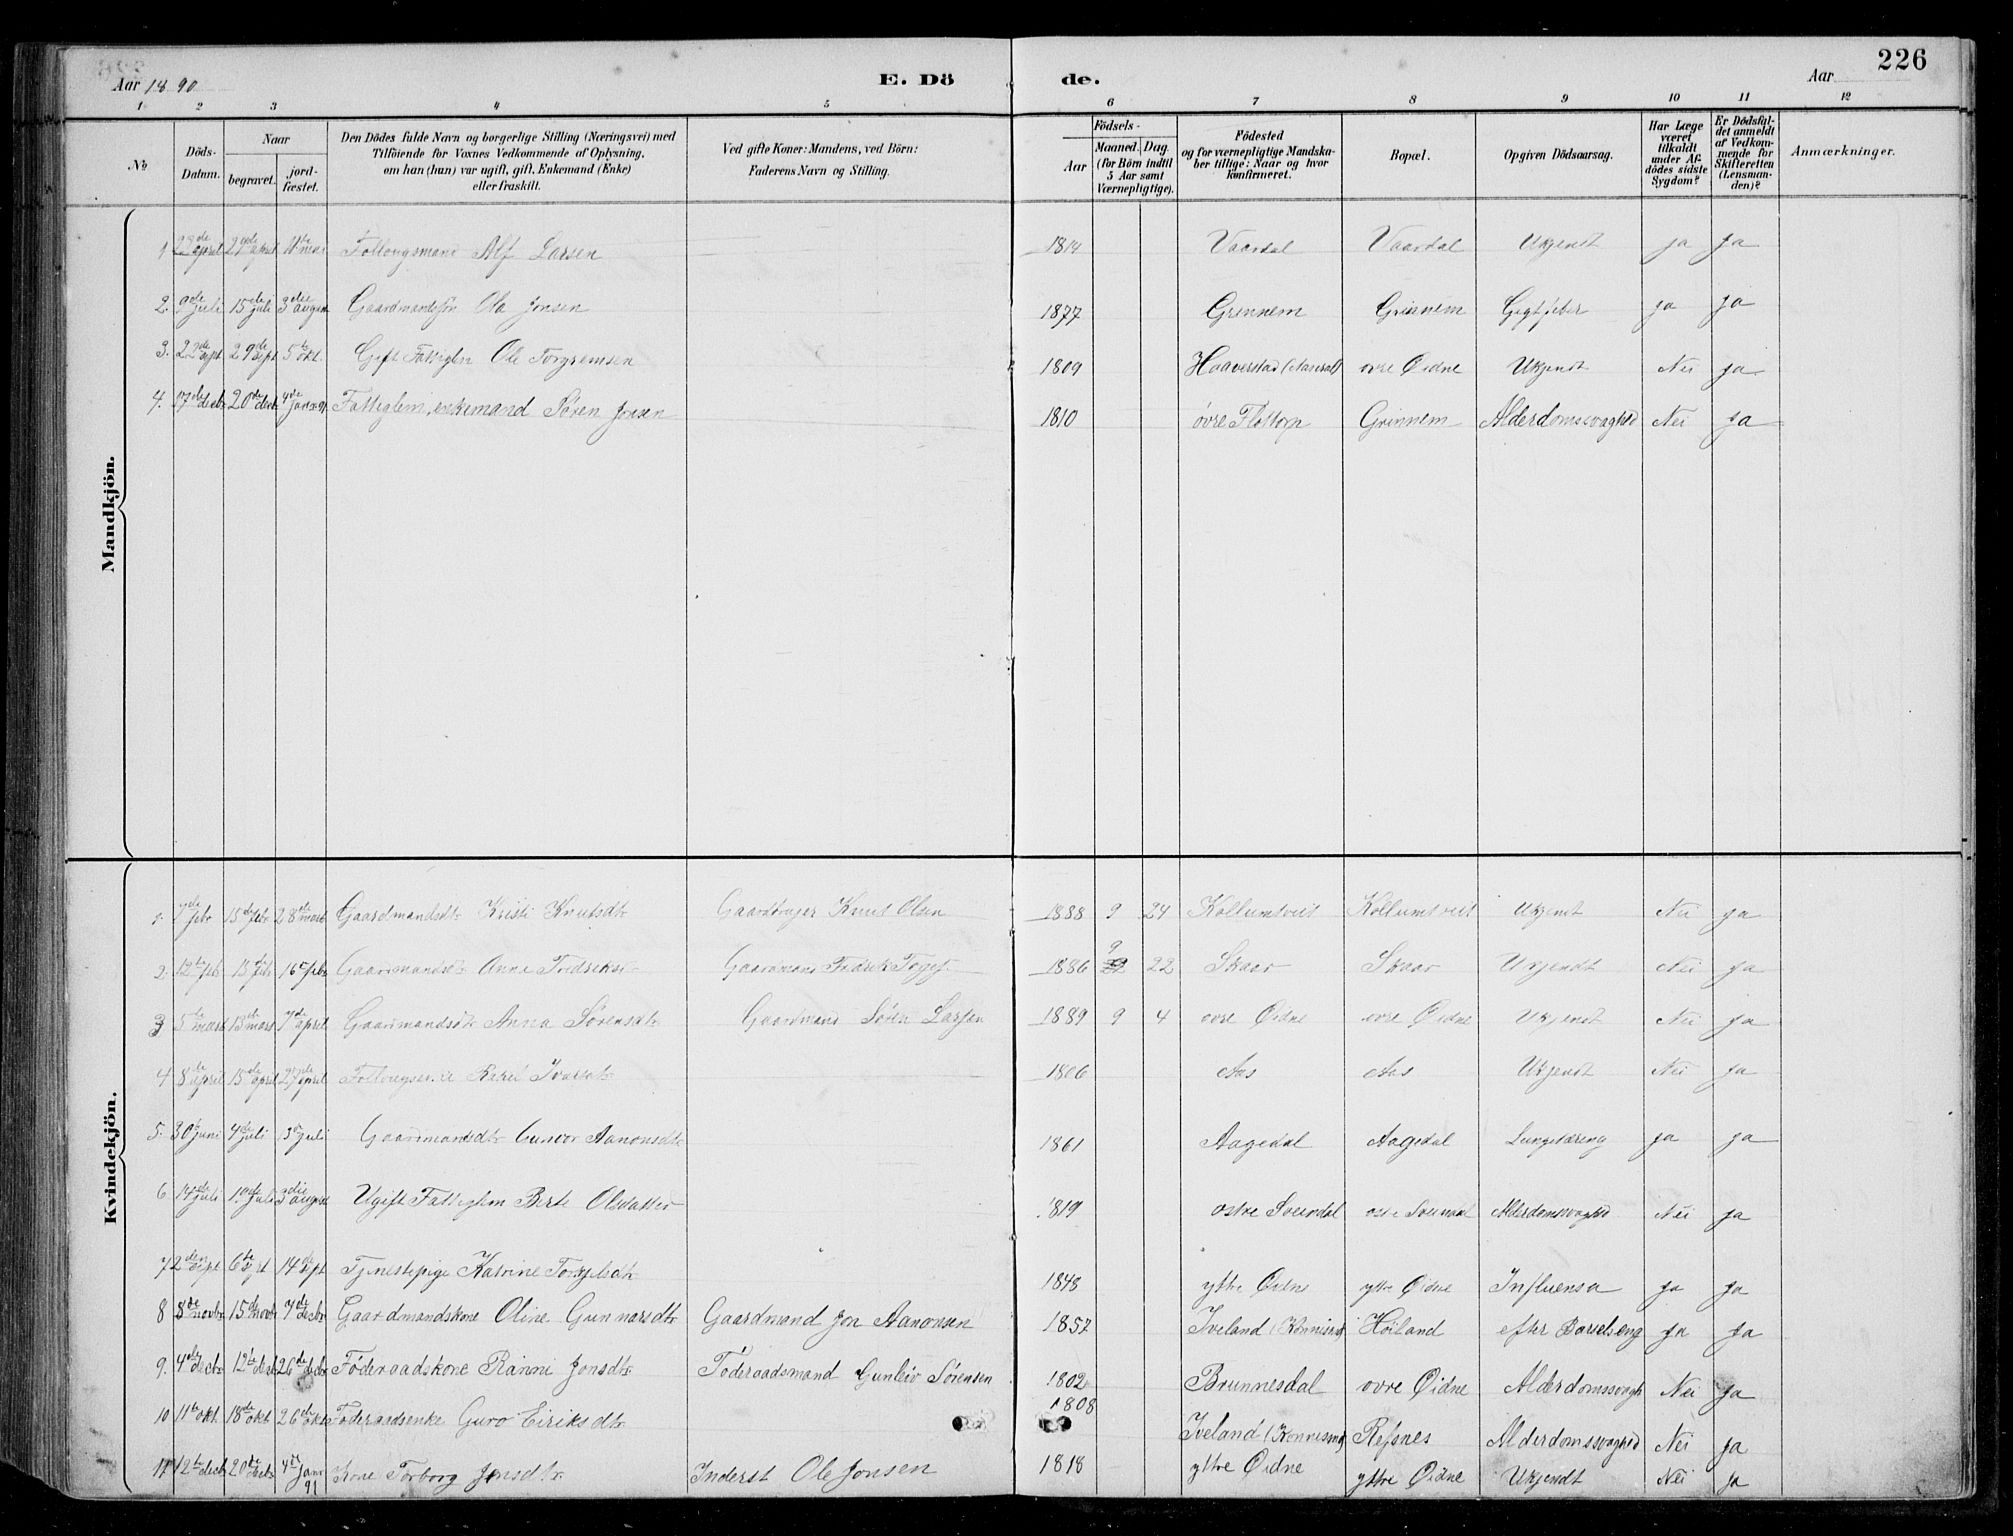 226
Aar 1890 E. Dö de. Aar
1 2 3 4 5 6 7 8 9 10 11 12
№
Döds-Datum.
Naar
begravet.
jord-fæstet.
Den Dödes fulde Navn og borgerlige Stilling (Næringsvei) med
Tilföiende for Voxnes Vedkommende af Oplysning,
om han (hun) var ugift, gift, Enkemand (Enke)
eller fraskilt.
Ved gifte Koner: Mandens, ved Börn:
Faderens Navn og Stilling.
Födsels-
Aar
Maaned. Dag.
(for Börn indtil
5 Aar samt
Værnepligtige).
Födested
og for værnepligtige Mandska-
ber tillige: Naar og hvor
konfirmeret.
Bopæl.
Opgiven Dödsaarsag.
Har Læge
været
tilkaldt
under Af-
dödes sidste
Sygdom?
Er Dödsfal-
det anmeldt
af Vedkom-
mende for
Skifteretten
(Lensman-
den)?
Anmærkninger.
Mandkjön.
1 april april mai Alf Larsen 1814 Vaardal Vaardal Ukjendt ja ja
2. 9de juli 15de juli 3die august Gaardmandssøn Ola Jonsen 1877 Grinnem Grinnem Gigtfeber ja ja
3. 22de sept 29de sept 5te okt. Gift Fattiglem Ole Torgremsen 1809 Haaverstad (Aaseral) øvre Øidne Ukjendt Nei ja
4. 17de decbr 20de decb 4de jan Fattiglem, enkemand Søren Jonsen 1810 øvre Flottorp Grinnem Alderdomssvaghed Nei ja
Kvindekjön.
1. 7de febr 15de febr 28de mars Gaardmandsdtr Kristi Knutsdtr Gaardbruger Knut Olsen 1888 9 24 Kollumtveit Kollumtveit Ukjendt Nei ja
2. 12te feb 15de febr 16de febr Gaardmandsdtr Anne Fredriksdtr Gaardmand Fredrik 1886 9 22 Skaar Skaar Ukjendt Nei ja
3 5te mars 13de mars 7de april Gaardmandsdtr Anna Sørensdtr Gaardmand Søren Larsen 1889 9 4 øvre Øidne øvre Øidne Ukjendt Nei ja
4 8de april 15de april 27de april Ivarsdtr 1806 Aas Aas Ukjendt Nei ja
5. 30te juni 4de juli 13de juli Gaardmandsdtr Gunvor Aanonsdtr 1861 Aagedal Aagedal Lungetæring ja ja
6 14de juli 19de juli 3die august Ugift Fattiglem Berte Olsdatter 1819 østre Sveindal østre Sveindal Alderdomssvaghed Nei ja
7 2den sept 6te sept 14de sept Tjenestepige Katrine Torkjelsdtr 1848 yttre Øidne yttre Øidne Influensa ja ja
8 8de novbr 15de novbr 7de decbr Gaardmandskone Oline Gunnarsdtr Gaardmand Jon Aanonsen 1857 Iveland Høiland efter Barselseng ja ja
9. 4de decbr 12te decb 26de decbr Føderaadskone Ranni Jonsdtr Føderaadsmand Gunleiv Sørensen 1802 Brunnesdal øvre Øidne Alderdomssvagh Nei ja
10 11te okt. 18de okt 26de okt Føderaadsenke Guro Eiriksdtr 1808 Iveland Refsnes Alderdomssvaghed Nei ja
11 12te decb 20de decbr 4de janr 91 Kone Torborg Jonsdtr Inderst Ole Jonsen 1818 yttre Øidne yttre Øidne Ukjendt Nei ja